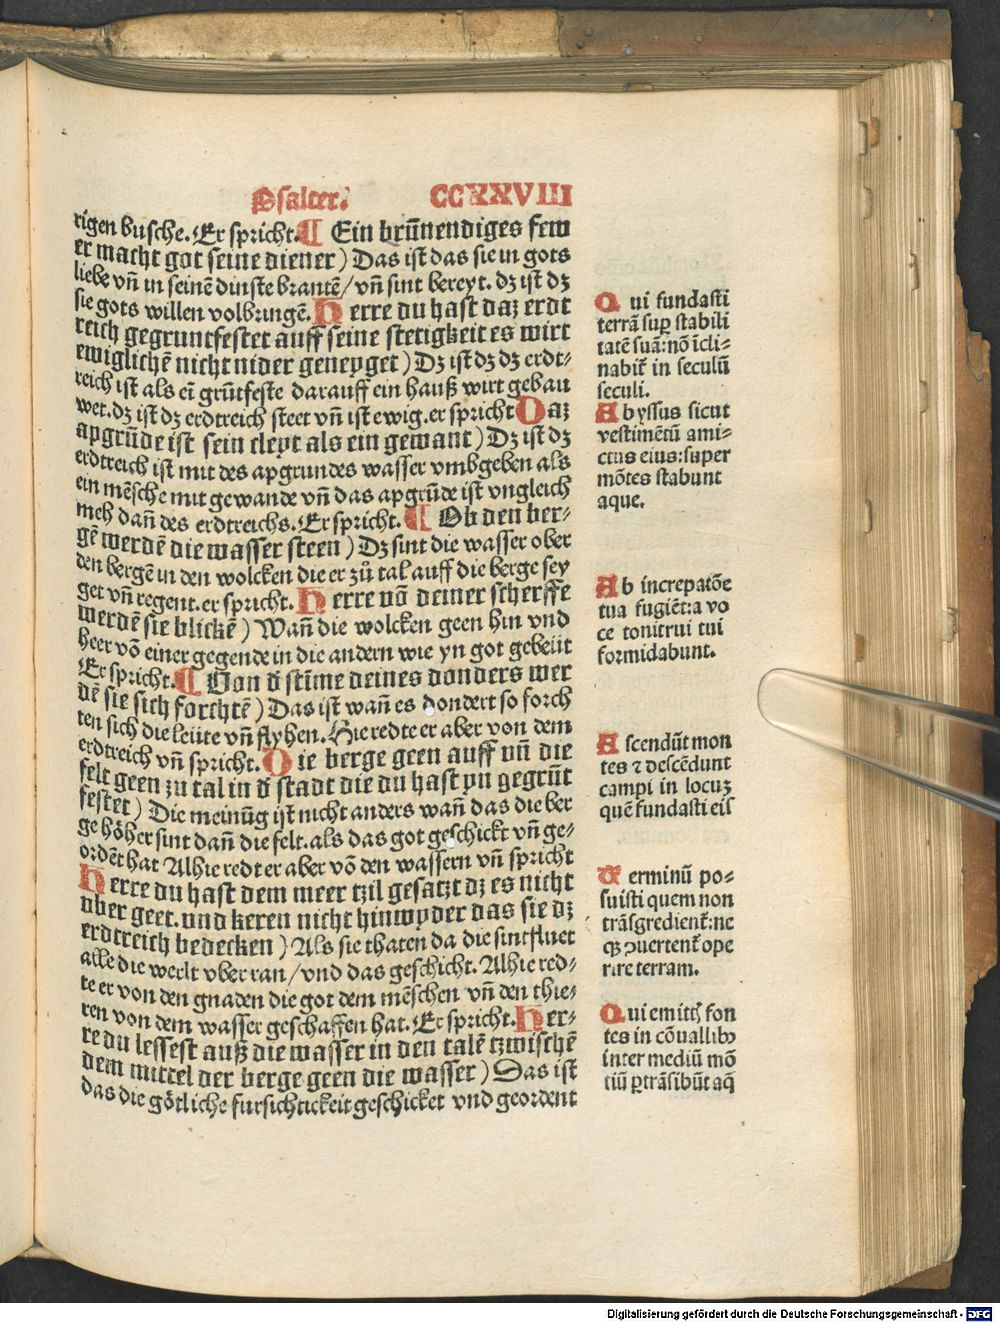 Psalter. CCXXVIII
rigen busche. Er spricht. ¶ Ein brūnendiges few
er macht got seine diener) Das ist das sie in gots
liebe vn̄ in seinē dinste brantē/ vn̄ sint bereyt. dz ist dz
sie gots willen volbringē. Herre du hast daz erdt
reich gegruntfestet auff seine stetigkeit es wirt
ewiglichē nicht nider geneyget) Dz ist dz dz erdt-
reich ist als eī grūtfeste darauff ein hauß wirt gebau
wet. dz ist dz erdtreich steet vn̄ ist ewig. er spricht Daz
apgrūde ist sein cleyt als ein gewant) Dz ist dz
erdtreich ist mit des apgrundes wasser vmbgeben als
ein mēsche mit gewande vn̄ das apgrūde ist vngleich
meh dan̄ des erdtreichs. Er spricht. ¶ Ob den ber-
gē werdē die wasser steen) Dz sint die wasser ober
den bergē in den wolcken die er zů tal auff die berge sey
get vn̄ regent. er spricht. Herre vō deiner scherffe
werdē sie blickē) Wan̄ die wolcken geen hin vnd
heer vō einer gegende in die andern wie yn got gebeüt
Er spricht. ¶ Von d̄ stīme deines donders wer
dē sie sich forchtē) Das ist wan̄ es dondert so forch
ten sich die leüte vn̄ flyhen. Hie redte er aber von dem
erdtreich vn̄ spricht. Die berge geen auff vn̄ die
felt geen zu tal in d̄ stadt die du hast yn gegrūt
festet) Die meinūg ist nicht anders wan̄ das die ber
ge höher sint dan̄ die felt. als das got geschickt vn̄ ge-
ordēt hat Alhie redt er aber vō den wassern vn̄ spricht
Herre du hast dem meer tzil gesatzt dz es nicht
vber geet. vnd keren nicht hinwyder das sie dz
erdtreich bedecken) Als sie thaten da die sintfluet
alle die werlt vber ran/ vnd das geschicht. Alhie red-
te er von den gnaden die got dem mēschen vn̄ den thie-
ren von dem wasser geschaffen hat. Er spricht. Her-
re du lessest auß die wasser in den talē tzwischē
dem mittel der berge geen die wasser) Das ist
das die götliche fursichtickeit geschicket vnd geordent
Qui fundasti
terrā suꝑ stabili
tatē suā: nō īcli-
nabit᷑ in seculū
seculi.
Abyssus sicut
vestimētū ami-
ctus eius: super
mōtes stabunt
aque.
Ab increpatōe
tua fugiēt: a vo
ce tonitrui tui
formidabunt.
Ascendūt mon
tes ⁊ descēdunt
campi in locuꝫ
quē fundasti eis
Terminū po-
suisti quem non
trāsgredient᷑: ne
qꝫ ꝯuertent᷑ ope
rire terram.
Qui emittis fon
tes in cōuallibꝰ
inter mediū mō
tiū ꝑtrāsibūt aq̄
Digitalisierung gefördert durch die Deutsche Forschungsgemeinschaft - DFG